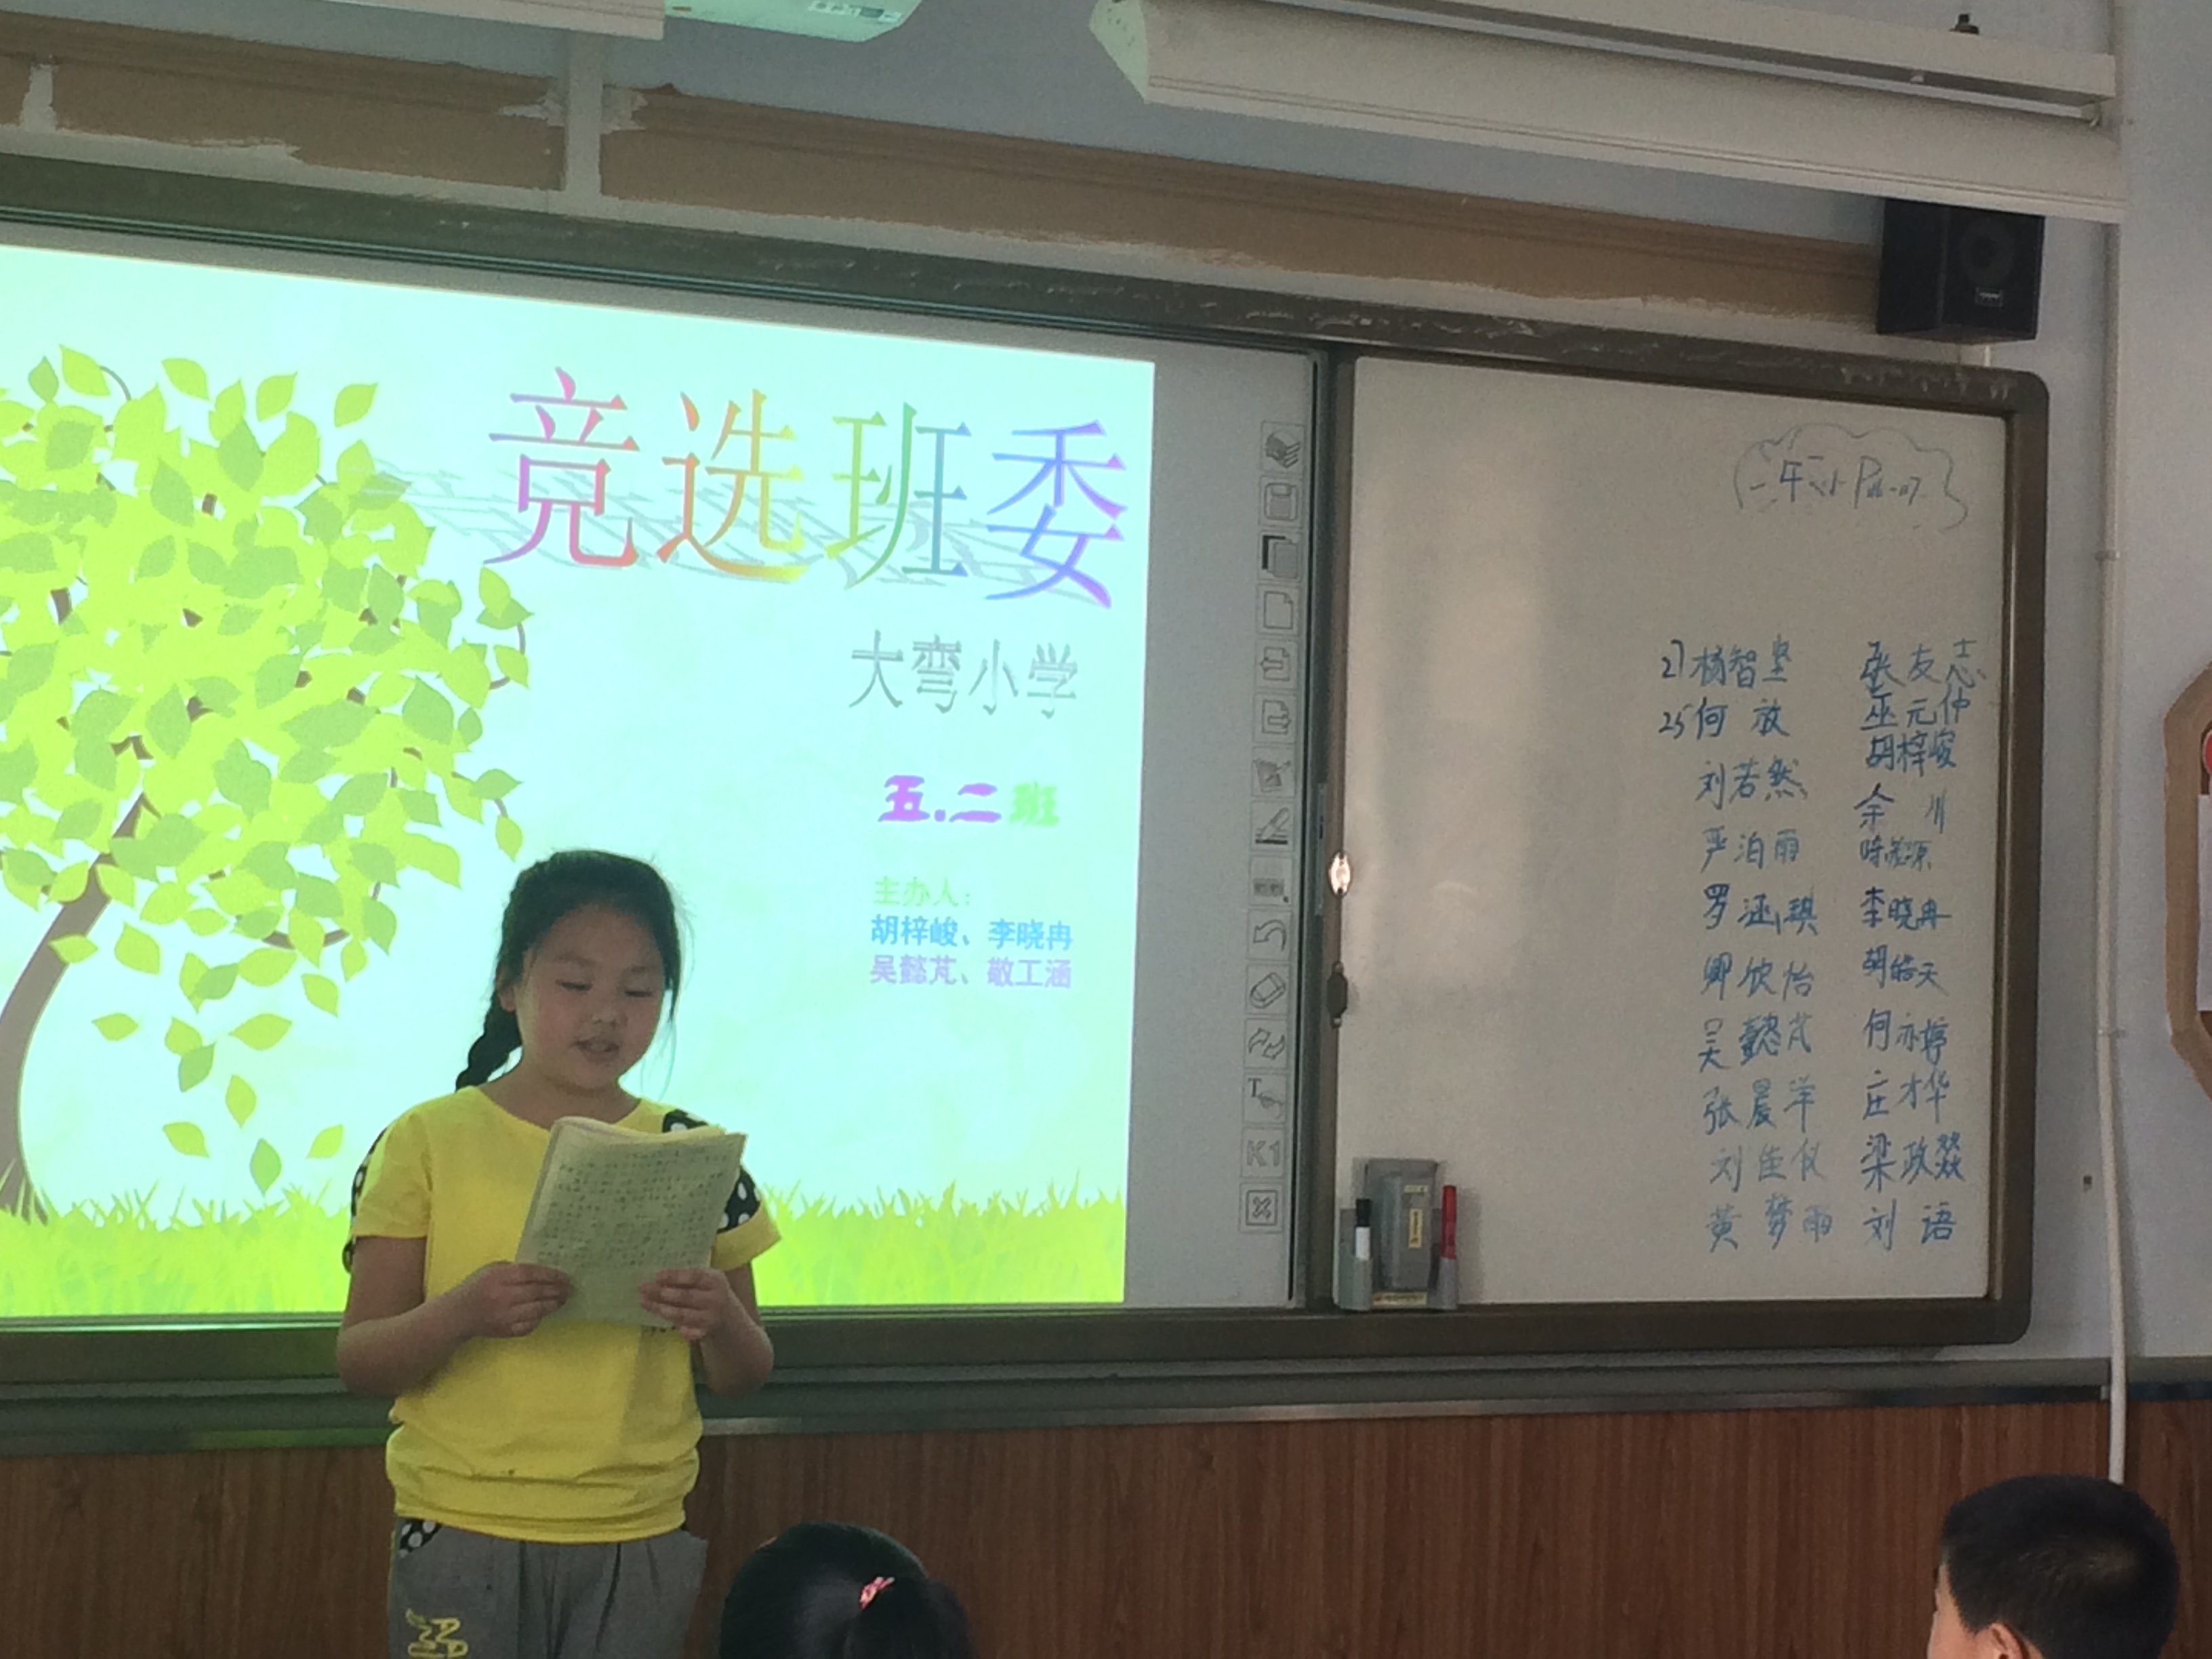 竞选班委
大弯小学
五.二班
主办人：
胡梓峻、李晓冉
吴懿芃、敬工涵
T
K1
27 杨智坚
25 何放
刘若然
严泊雨
罗涵琪
卿欣怡
吴懿芃
张晨洋
刘佳仪
黄梦雨
张友志
巫元仲
胡梓峻
余川
李晓冉
胡皓天
何亦婷
庄才华
梁政燚
刘语